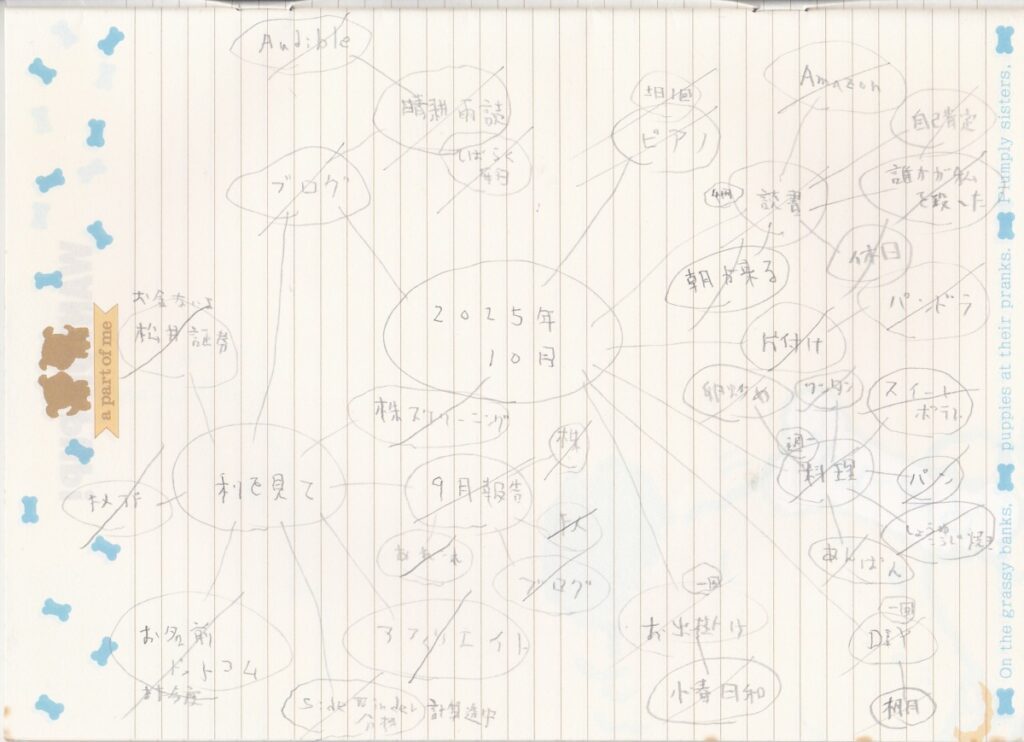 Audible
Amazon
晴耕雨読
毎日1回
ピアノ
自己肯定
しばらく
毎日
ブログ
4冊
読書
誰かが私
を殺した
朝が来る
休日
パンドラ
お金ないよ
松井証券
2025年
10月
片付け
株スクリーニング
卵炒め
ワンタン
スイート
ポテト
株
週一
料理
パン
利を見て
9月報告
しょうゆ
こうじ
あんぱん
ブログ
一回
お出掛け
一回
DIY
お名前
ドットコム
アフィリエイト
小春日和
棚
計算途中
a part of me
On the grassy banks, puppies at their pranks. Plumply sisters,